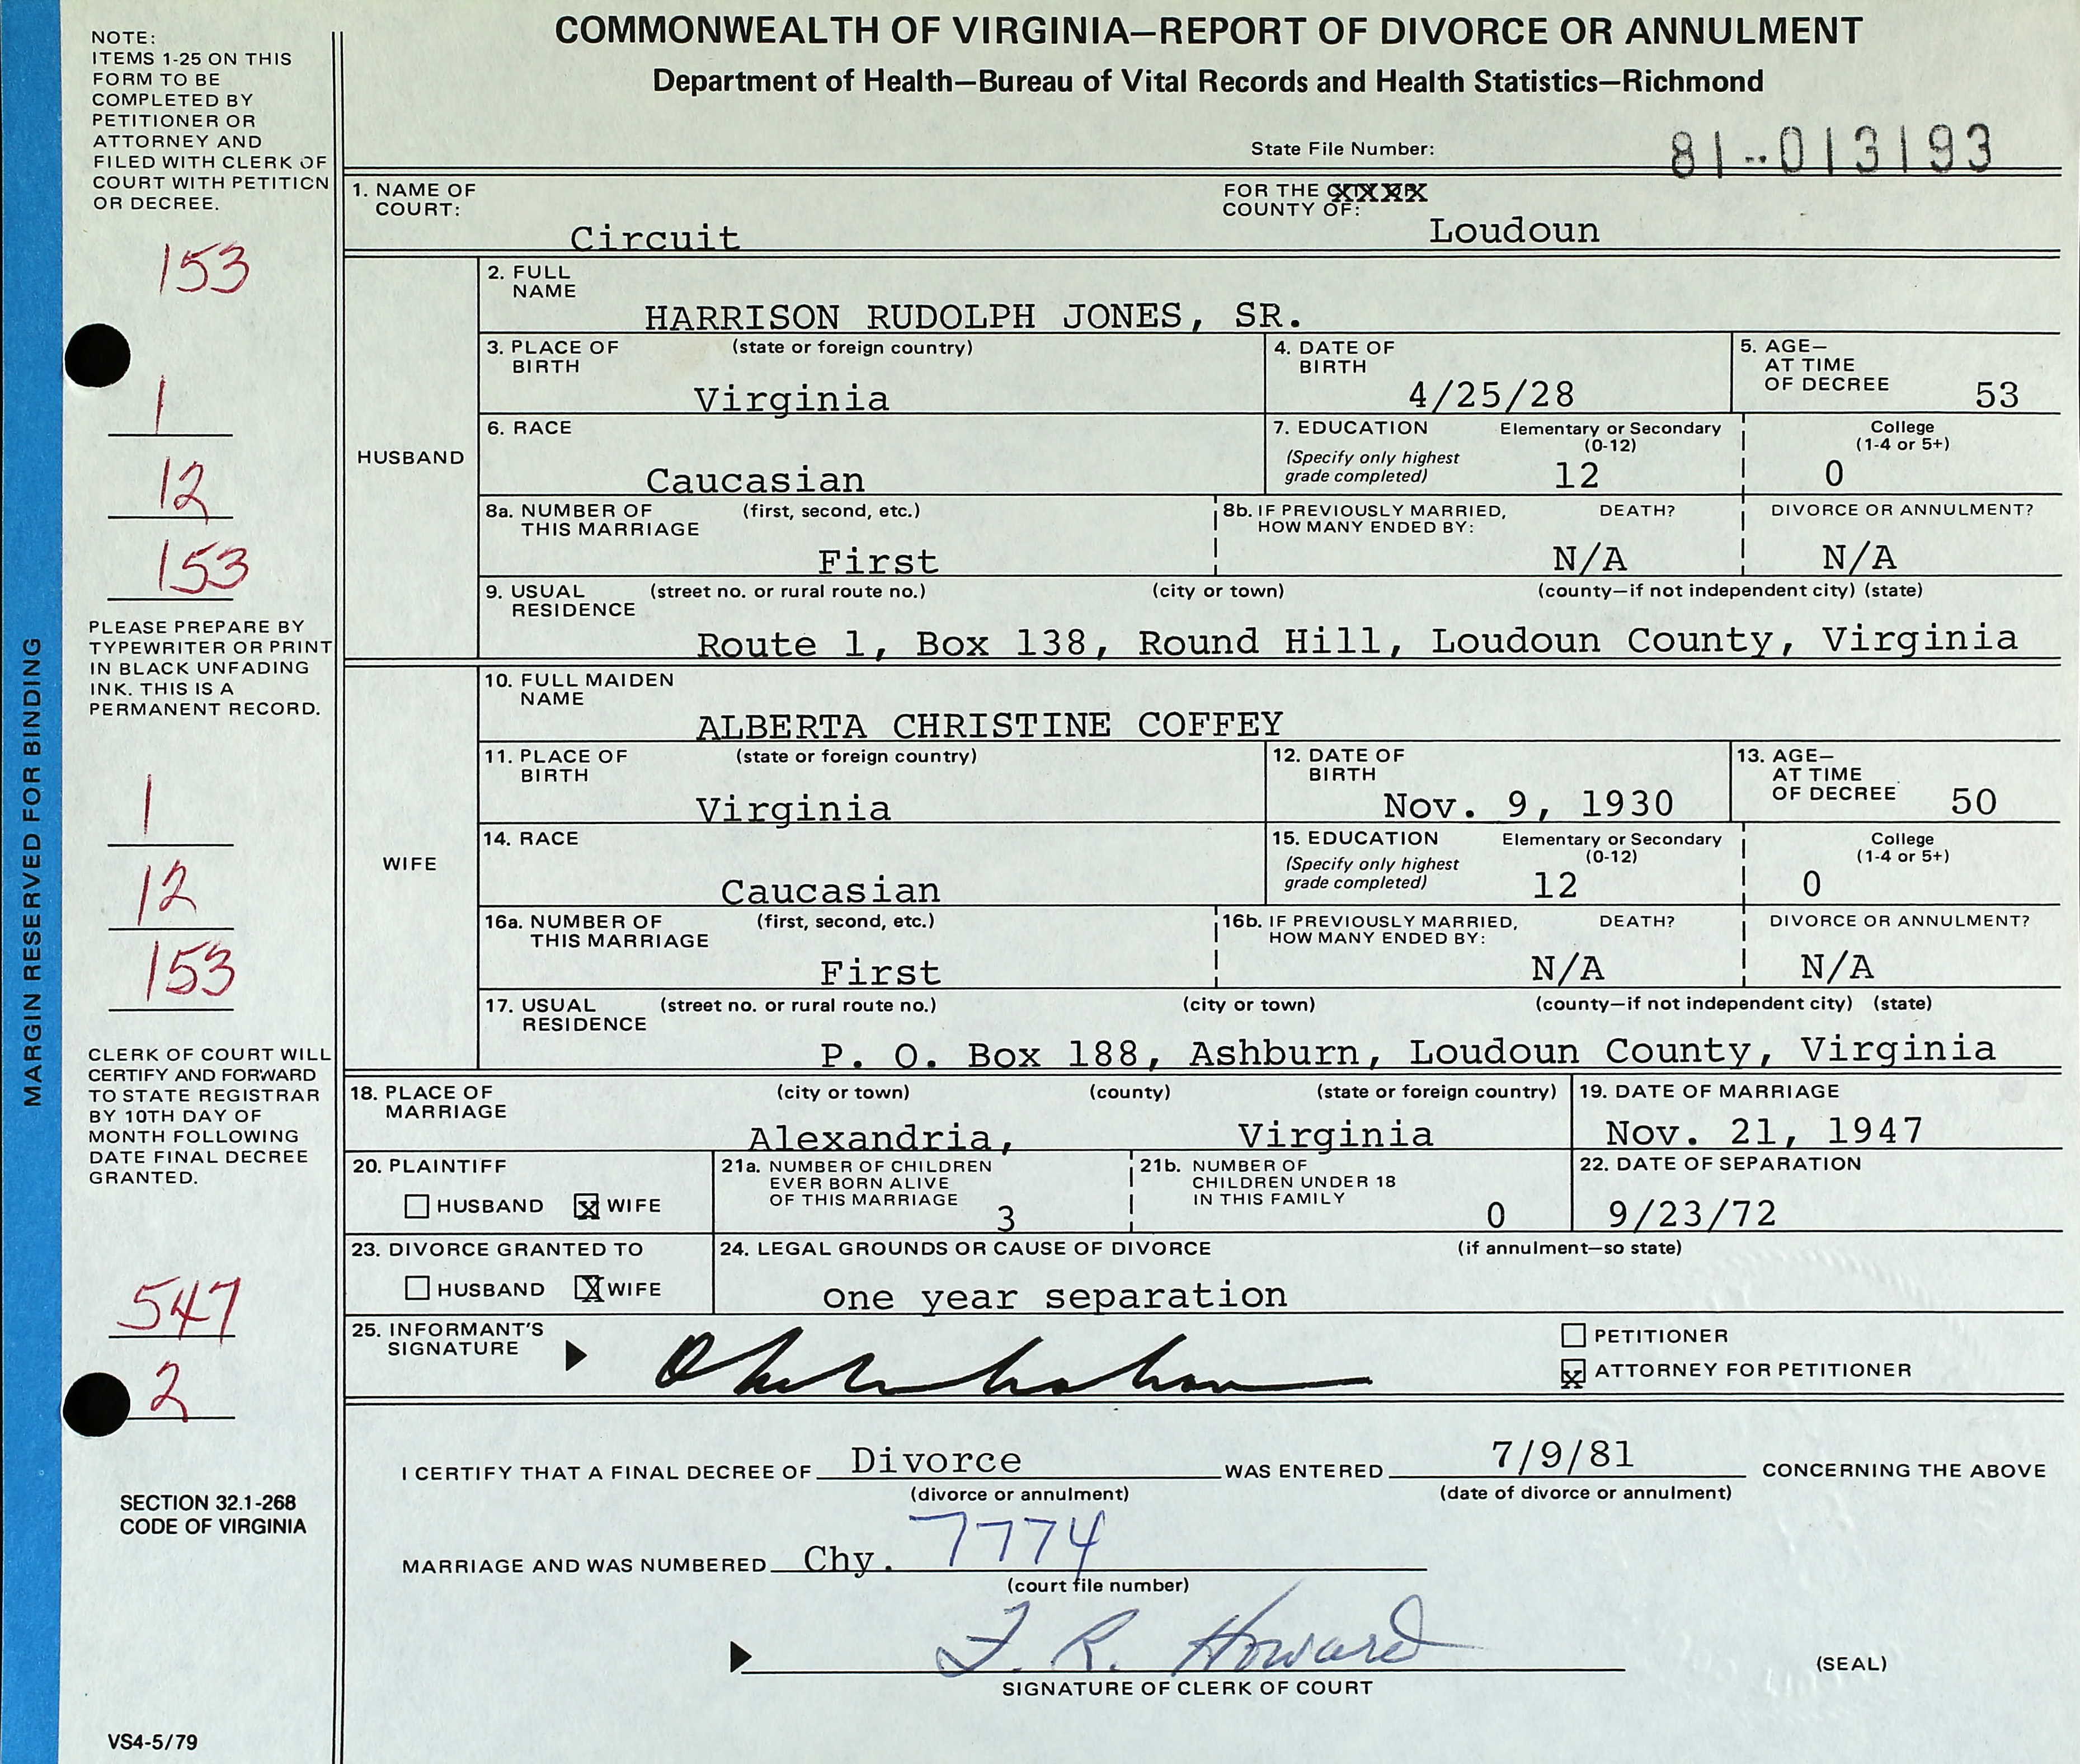 COMMONWEALTH OF VIRGINIA—REPORT OF DIVORCE OR ANNULMENT
Department of Health—Bureau of Vital Records and Health Statistics—Richmond
State File Number: 81--013193
NOTE:
ITEMS 1-25 ON THIS
FORM TO BE
COMPLETED BY
PETITIONER OR
ATTORNEY AND
FILED WITH CLERK OF
COURT WITH PETITION
OR DECREE.
153
1
12
153
PLEASE PREPARE BY
TYPEWRITER OR PRINT
IN BLACK UNFADING
INK. THIS IS A
PERMANENT RECORD.
1
12
153
CLERK OF COURT WILL
CERTIFY AND FORWARD
TO STATE REGISTRAR
BY 10TH DAY OF
MONTH FOLLOWING
DATE FINAL DECREE
GRANTED.
547
2
SECTION 32.1-268
CODE OF VIRGINIA
VS4-5/79
MARGIN RESERVED FOR BINDING
1. NAME OF COURT: Circuit
FOR THE
COUNTY OF: Loudoun
HUSBAND
2. FULL NAME
HARRISON RUDOLPH JONES, SR.
3. PLACE OF BIRTH (state or foreign country)
Virginia
4. DATE OF BIRTH
4/25/28
5. AGE—AT TIME OF DECREE 53
6. RACE
Caucasian
7. EDUCATION (Specify only highest grade completed)
Elementary or Secondary (0-12)
12
College (1-4 or 5+)
0
8a. NUMBER OF THIS MARRIAGE (first, second, etc.)
First
8b. IF PREVIOUSLY MARRIED, HOW MANY ENDED BY:
DEATH?
N/A
DIVORCE OR ANNULMENT?
N/A
9. USUAL RESIDENCE (street no. or rural route no.) (city or town) (county—if not independent city) (state)
Route 1, Box 138, Round Hill, Loudoun County, Virginia
WIFE
10. FULL MAIDEN NAME
ALBERTA CHRISTINE COFFEY
11. PLACE OF BIRTH (state or foreign country)
Virginia
12. DATE OF BIRTH
Nov. 9, 1930
13. AGE—AT TIME OF DECREE 50
14. RACE
Caucasian
15. EDUCATION (Specify only highest grade completed)
Elementary or Secondary (0-12)
12
College (1-4 or 5+)
0
16a. NUMBER OF THIS MARRIAGE (first, second, etc.)
First
16b. IF PREVIOUSLY MARRIED, HOW MANY ENDED BY:
DEATH?
N/A
DIVORCE OR ANNULMENT?
N/A
17. USUAL RESIDENCE (street no. or rural route no.) (city or town) (county—if not independent city) (state)
P. O. Box 188, Ashburn, Loudoun County, Virginia
18. PLACE OF MARRIAGE (city or town) (county) (state or foreign country)
Alexandria, Virginia
19. DATE OF MARRIAGE
Nov. 21, 1947
20. PLAINTIFF
HUSBAND x WIFE
21a. NUMBER OF CHILDREN EVER BORN ALIVE OF THIS MARRIAGE 3
21b. NUMBER OF CHILDREN UNDER 18 IN THIS FAMILY 0
22. DATE OF SEPARATION
9/23/72
23. DIVORCE GRANTED TO
HUSBAND X WIFE
24. LEGAL GROUNDS OR CAUSE OF DIVORCE (if annulment—so state)
one year separation
25. INFORMANT'S SIGNATURE
PETITIONER
x ATTORNEY FOR PETITIONER
I CERTIFY THAT A FINAL DECREE OF Divorce WAS ENTERED 7/9/81 CONCERNING THE ABOVE
(divorce or annulment) (date of divorce or annulment)
MARRIAGE AND WAS NUMBERED Chy. 7774
(court file number)
J. R. Howard
SIGNATURE OF CLERK OF COURT
(SEAL)